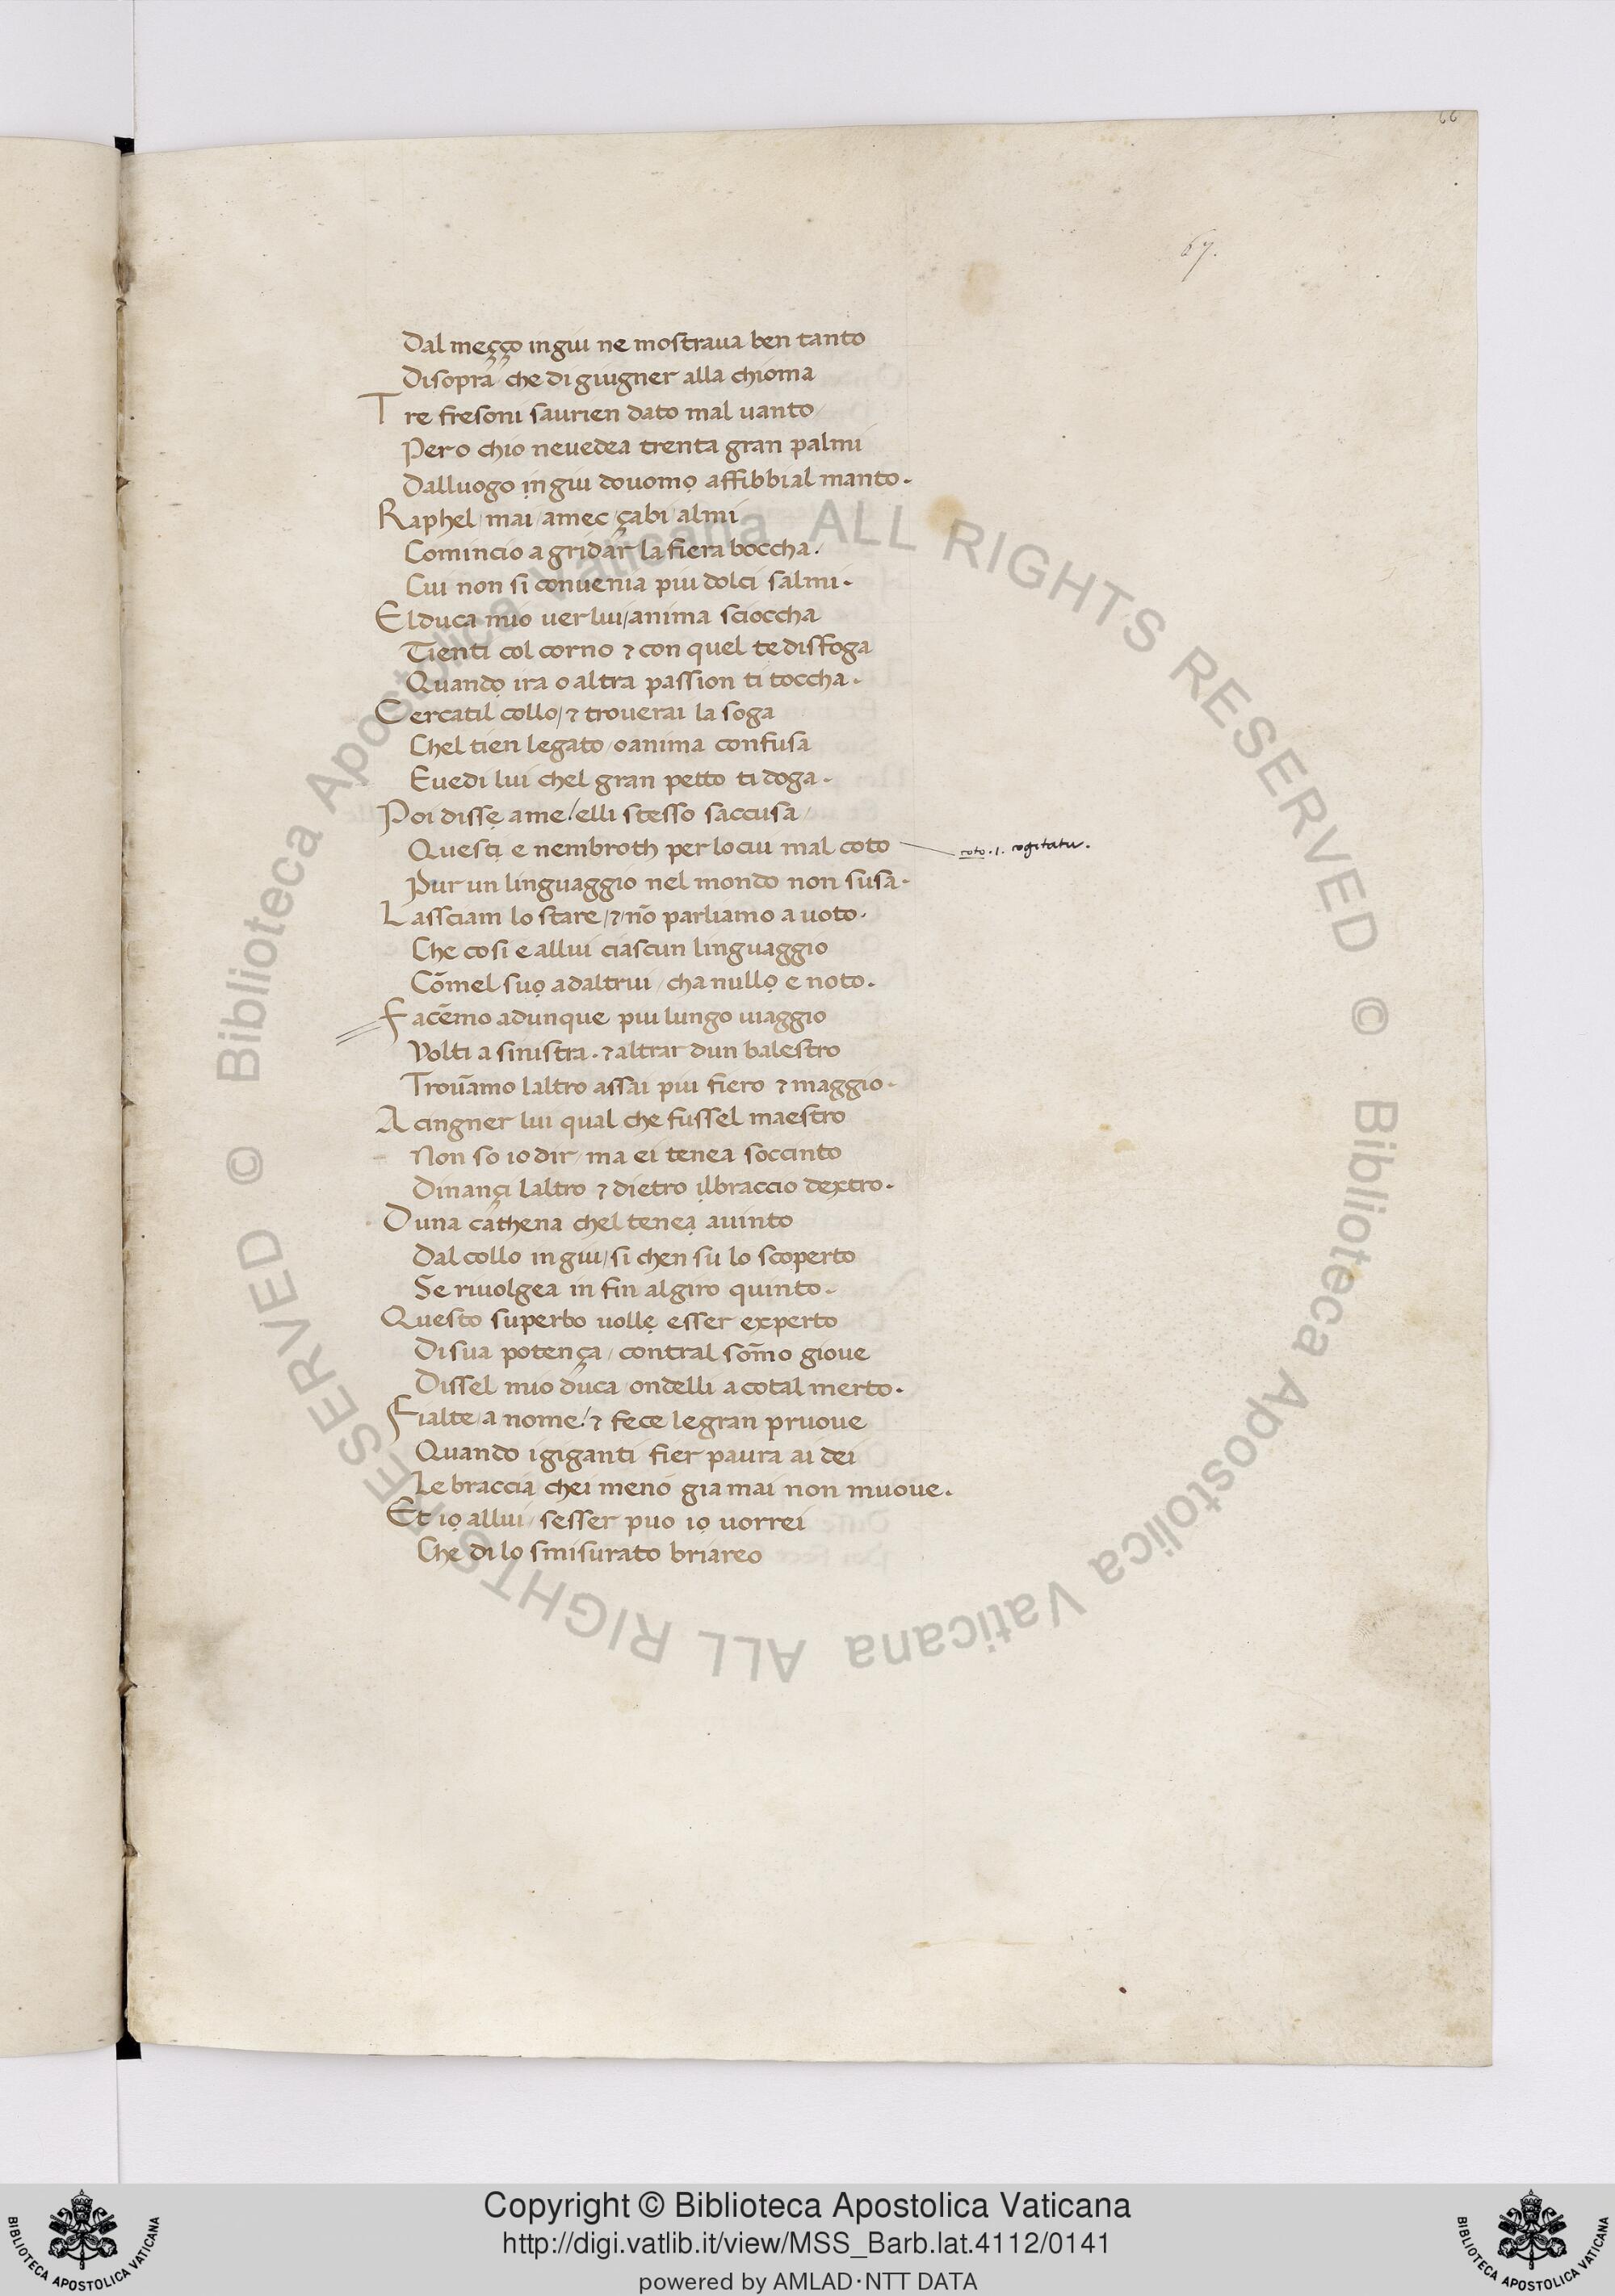 66
67.
Dal meçço ingiu ne mostraua ben tanto
Disopra che di giugner alla chioma
Tre fresoni saurien dato mal uanto
Pero chio neuedea trenta gran palmi
Dalluogo ingiu douomo affibbial manto.
Raphel / mai / amec / çabi / almi
Comincio a gridar la fiera boccha.
Cui non si conuenia piu dolci salmi.
Elduca mio uer lui / anima scioccha
Tienti col corno ⁊ con quel te disfoga
Quando ira o altra passion ti toccha.
Cercatil collo / ⁊ trouerai la soga
Chel tien legato / oanima confusa
Euedi lui chel gran petto ti doga.
Poi disse ame / elli stesso saccusa
Questi e nembroth per lo cui mal coto
coto .i. cogitatu.
Pur un linguaggio nel mondo non susa.
Lassciam lo stare / ⁊ nō parliamo a uoto.
Che cosi e allui ciascun linguaggio
Cōmel suo adaltrui / cha nullo e noto.
Facēmo adunque piu lungo uiaggio
Volti a sinistra. ⁊ altrar dun balestro
Trouāmo laltro assai piu fiero ⁊ maggio.
A cingner lui qual che fussel maestro
Non so io dir / ma ei tenea soccinto
Dinançi laltro ⁊ dietro ilbraccio dextro.
Duna cathena chel tenea auinto
Dal collo in giu / si chen su lo scoperto
Se riuolgea in fin algiro quinto.
Questo superbo uolle esser experto
Disua potença / contral sōmo gioue
Dissel mio duca / ondelli a cotal merto.
Fialte / a nome / ⁊ fece le gran pruoue
Quando i giganti fier paura ai dei
Le braccia chei meno gia mai non muoue.
Et io allui / sesser puo io uorrei
Che di lo smisurato briareo
© Biblioteca Apostolica Vaticana ALL RIGHTS RESERVED
© Biblioteca Apostolica Vaticana ALL RIGHTS RESERVED
BIBLIOTECA APOSTOLICA VATICANA
Copyright © Biblioteca Apostolica Vaticana
http://digi.vatlib.it/view/MSS_Barb.lat.4112/0141
powered by AMLAD·NTT DATA
BIBLIOTECA APOSTOLICA VATICANA